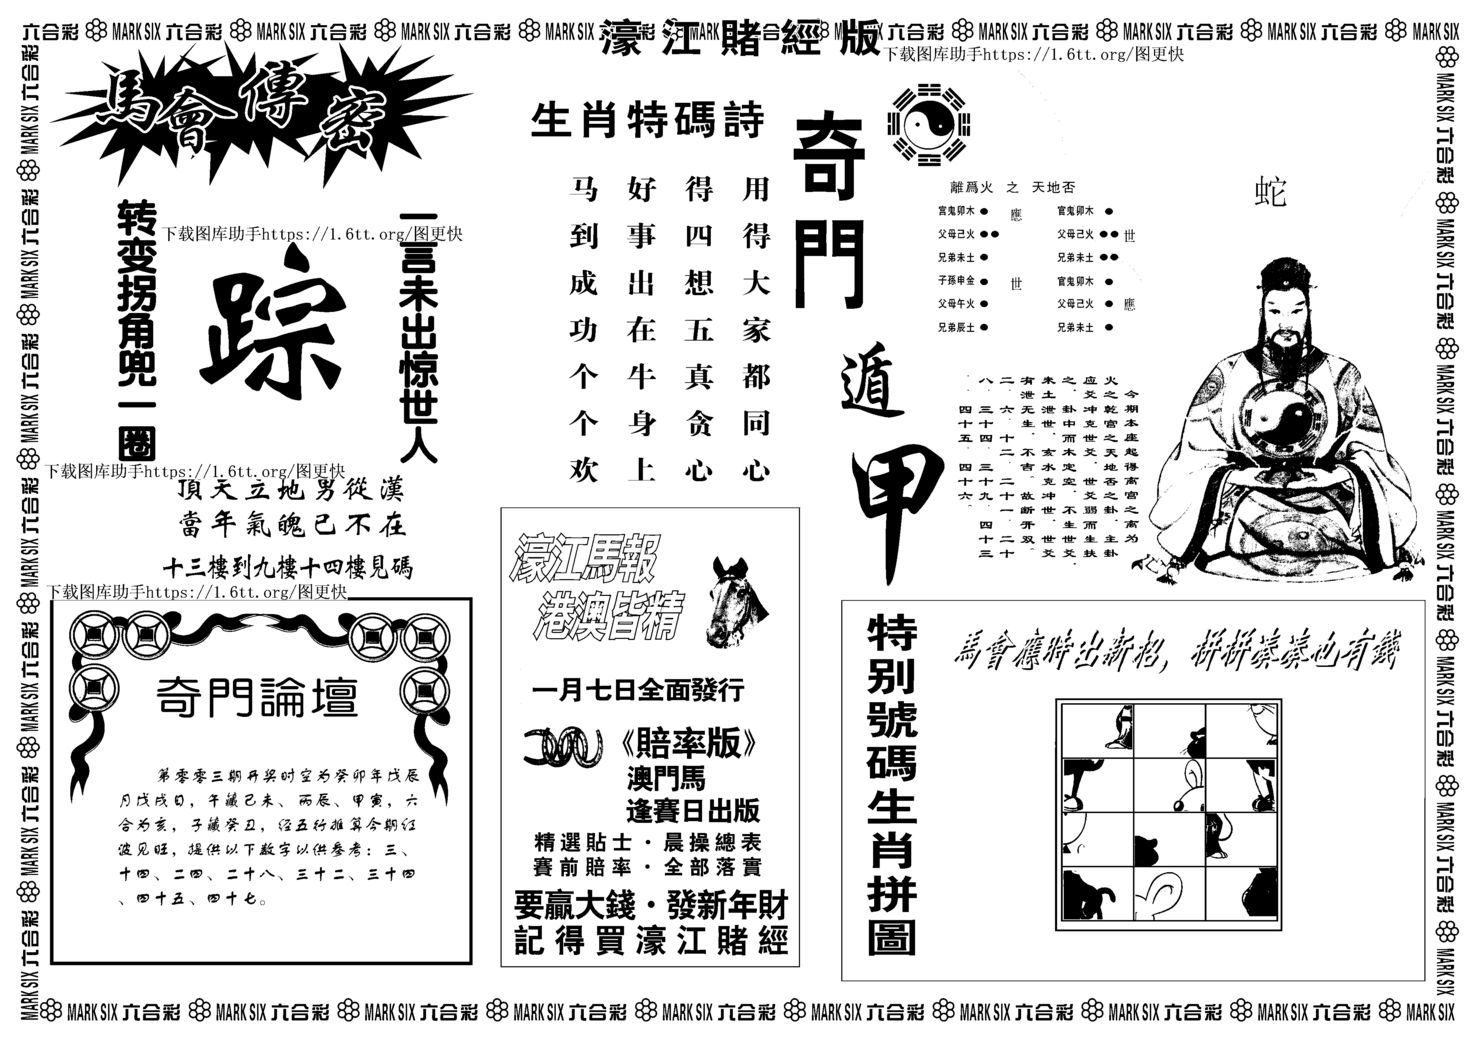 六合彩 MARK SIX 六合彩 MARK SIX 六合彩 MARK SIX 六合彩 MARK SIX 六合彩 MARK SIX 六合彩 MARK SIX 六合彩 MARK SIX 六合彩 MARK SIX 六合彩 MARK SIX 六合彩 MARK SIX
濠江賭經版
下载图库助手https://1.6tt.org/图更快
馬會傳密
一言未出惊世人
踪
转变拐角兜一圈
下载图库助手https://1.6tt.org/图更快
下载图库助手https://1.6tt.org/图更快
頂天立地男從漢
當年氣魄已不在
十三樓到九樓十四樓見碼
下载图库助手https://1.6tt.org/图更快
奇門論壇
第零零三期开奖时空为癸卯年戊辰
月戊戌日，午藏己未、丙辰、甲寅，六
合为亥，子藏癸丑，经五行推算今期红
波见旺，提供以下数字以供参考：三、
十四、二四、二十八、三十二、三十四
、四十五、四十七。
生肖特碼詩
用得大家都同心
得四想五真贪心
好事出在牛身上
马到成功个个欢
濠江馬報
港澳皆精
一月七日全面發行
《賠率版》
澳門馬
逢賽日出版
精選貼士·晨操總表
賽前賠率·全部落實
要贏大錢·發新年財
記得買濠江賭經
奇門遁甲
離爲火 之 天地否
宫鬼卯木 應 官鬼卯木
父母己火 父母己火 世
兄弟未土 兄弟未土
子孫申金 世 官鬼卯木
父母午火 父母己火 應
兄弟辰土 兄弟未土
蛇
今期本座起得离宫之离为
火之乾宫之天地否之卦，主卦
应爻冲克世爻，世爻弱而生扶
之，卦中而木定空，不生世爻，
未土泄世，玄水克冲世，世爻
有泄无生，不吉。故断开双。
二、六、十二、二十一、二十
八、三十四、三十九、四十三
、四十五、四十六。
特别號碼生肖拼圖
馬會應時出新招，拼拼湊湊也有錢
MARK SIX 六合彩 MARK SIX 六合彩 MARK SIX 六合彩 MARK SIX 六合彩 MARK SIX 六合彩 MARK SIX 六合彩 MARK SIX 六合彩 MARK SIX 六合彩 MARK SIX 六合彩 MARK SIX